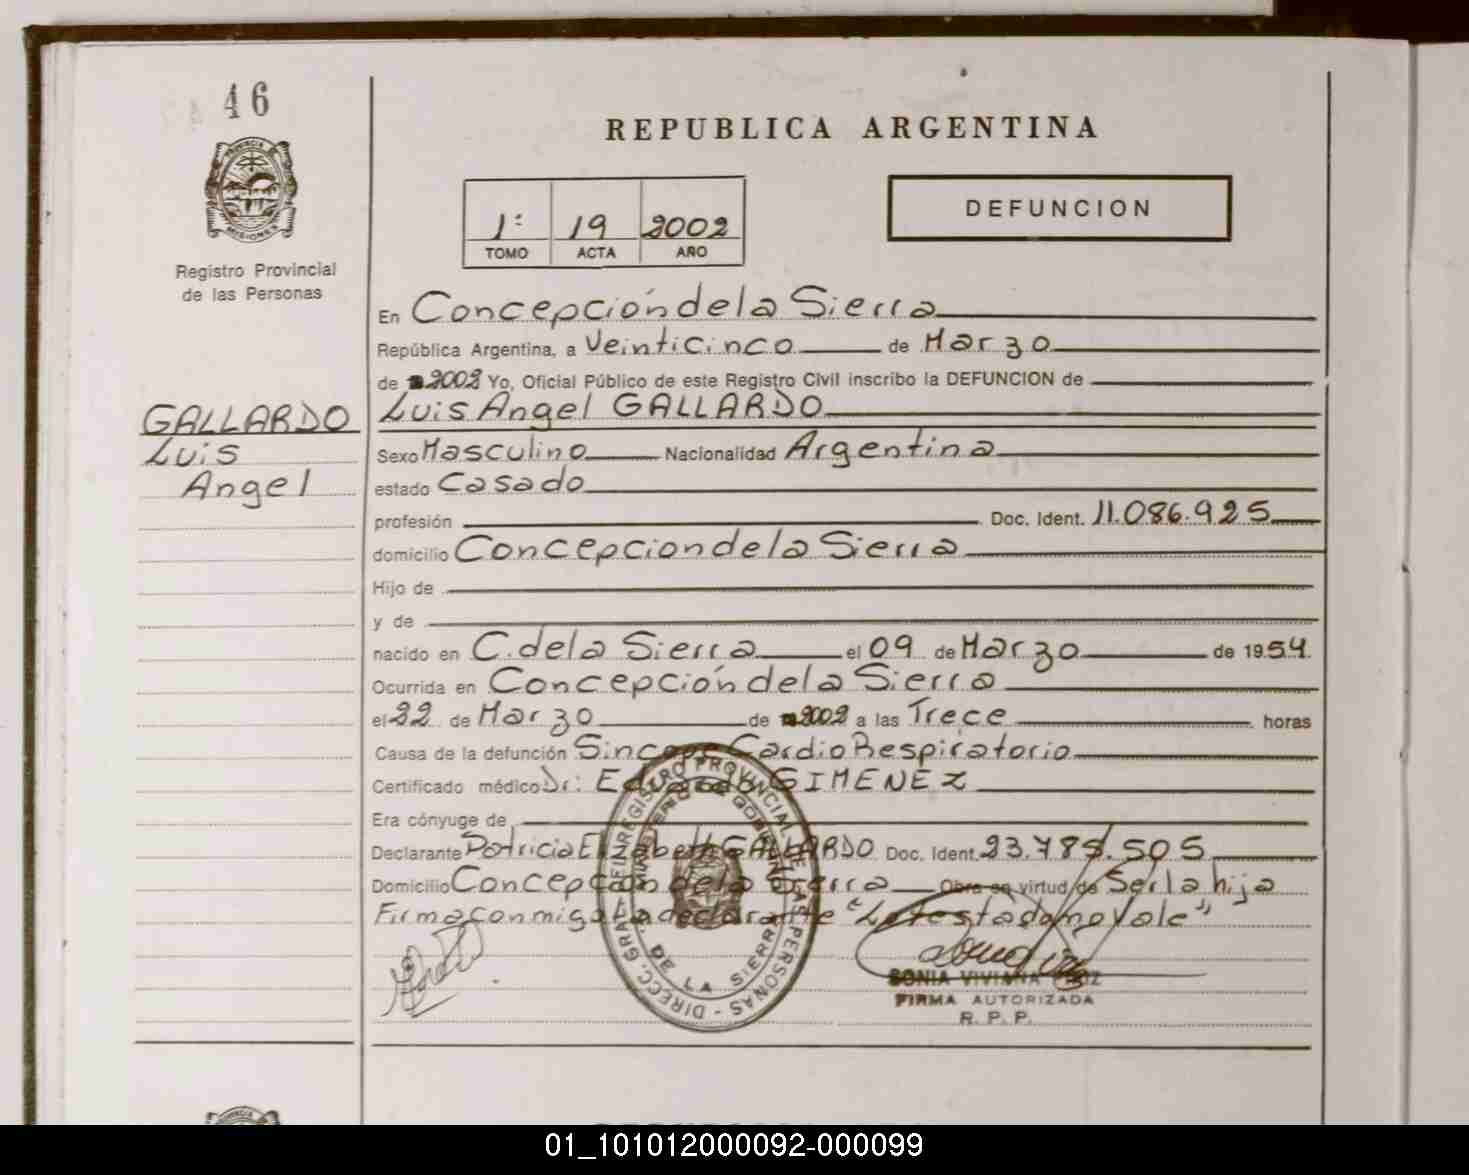 46
REPUBLICA ARGENTINA
PROVINCIA DE
MISIONES
1: 19 2002
TOMO ACTA AÑO
DEFUNCION
Registro Provincial
de las Personas
En Concepción de la Sierra
República Argentina, a Veinticinco de Marzo
de 2002 Yo, Oficial Público de este Registro Civil inscribo la DEFUNCION de
GALLARDO
Luis
Angel
Luis Angel GALLARDO
Sexo Masculino Nacionalidad Argentina
estado Casado
profesión Doc. Ident. 11.086.925
domicilio Concepcion de la Sierra
Hijo de
y de
nacido en C. de la Sierra el 09 de Marzo de 1954
Ocurrida en Concepción de la Sierra
el 22 de Marzo de 2002 a las Trece horas
Causa de la defunción Sincope Cardio Respiratorio
Certificado médico Dr: Eduardo GIMENEZ
Era cónyuge de
Declarante Patricia Elizabeth GALLARDO Doc. Ident. 23.785.505
Domicilio Concepcion de la Sierra Obra en virtud de Ser la hija
Firma conmigo la declarante "Lo testado no Vale"
DIRECC. GRAL. DEL REGISTRO PROVINCIAL DE LAS PERSONAS
MINISTERIO DE GOBIERNO
DE LA SIERRA
SONIA VIVIANA
FIRMA AUTORIZADA
R. P. P.
01_101012000092-000099